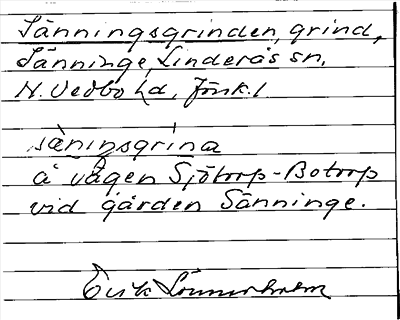 Sänningsgrinden, grind,
Sänninge, Linderås sn,
N. Vedbo hd, Jönk. l
sæninsgrina
å vägen Sjötorp-Botorp
vid gården Sänninge.
Erik Lönnerholm